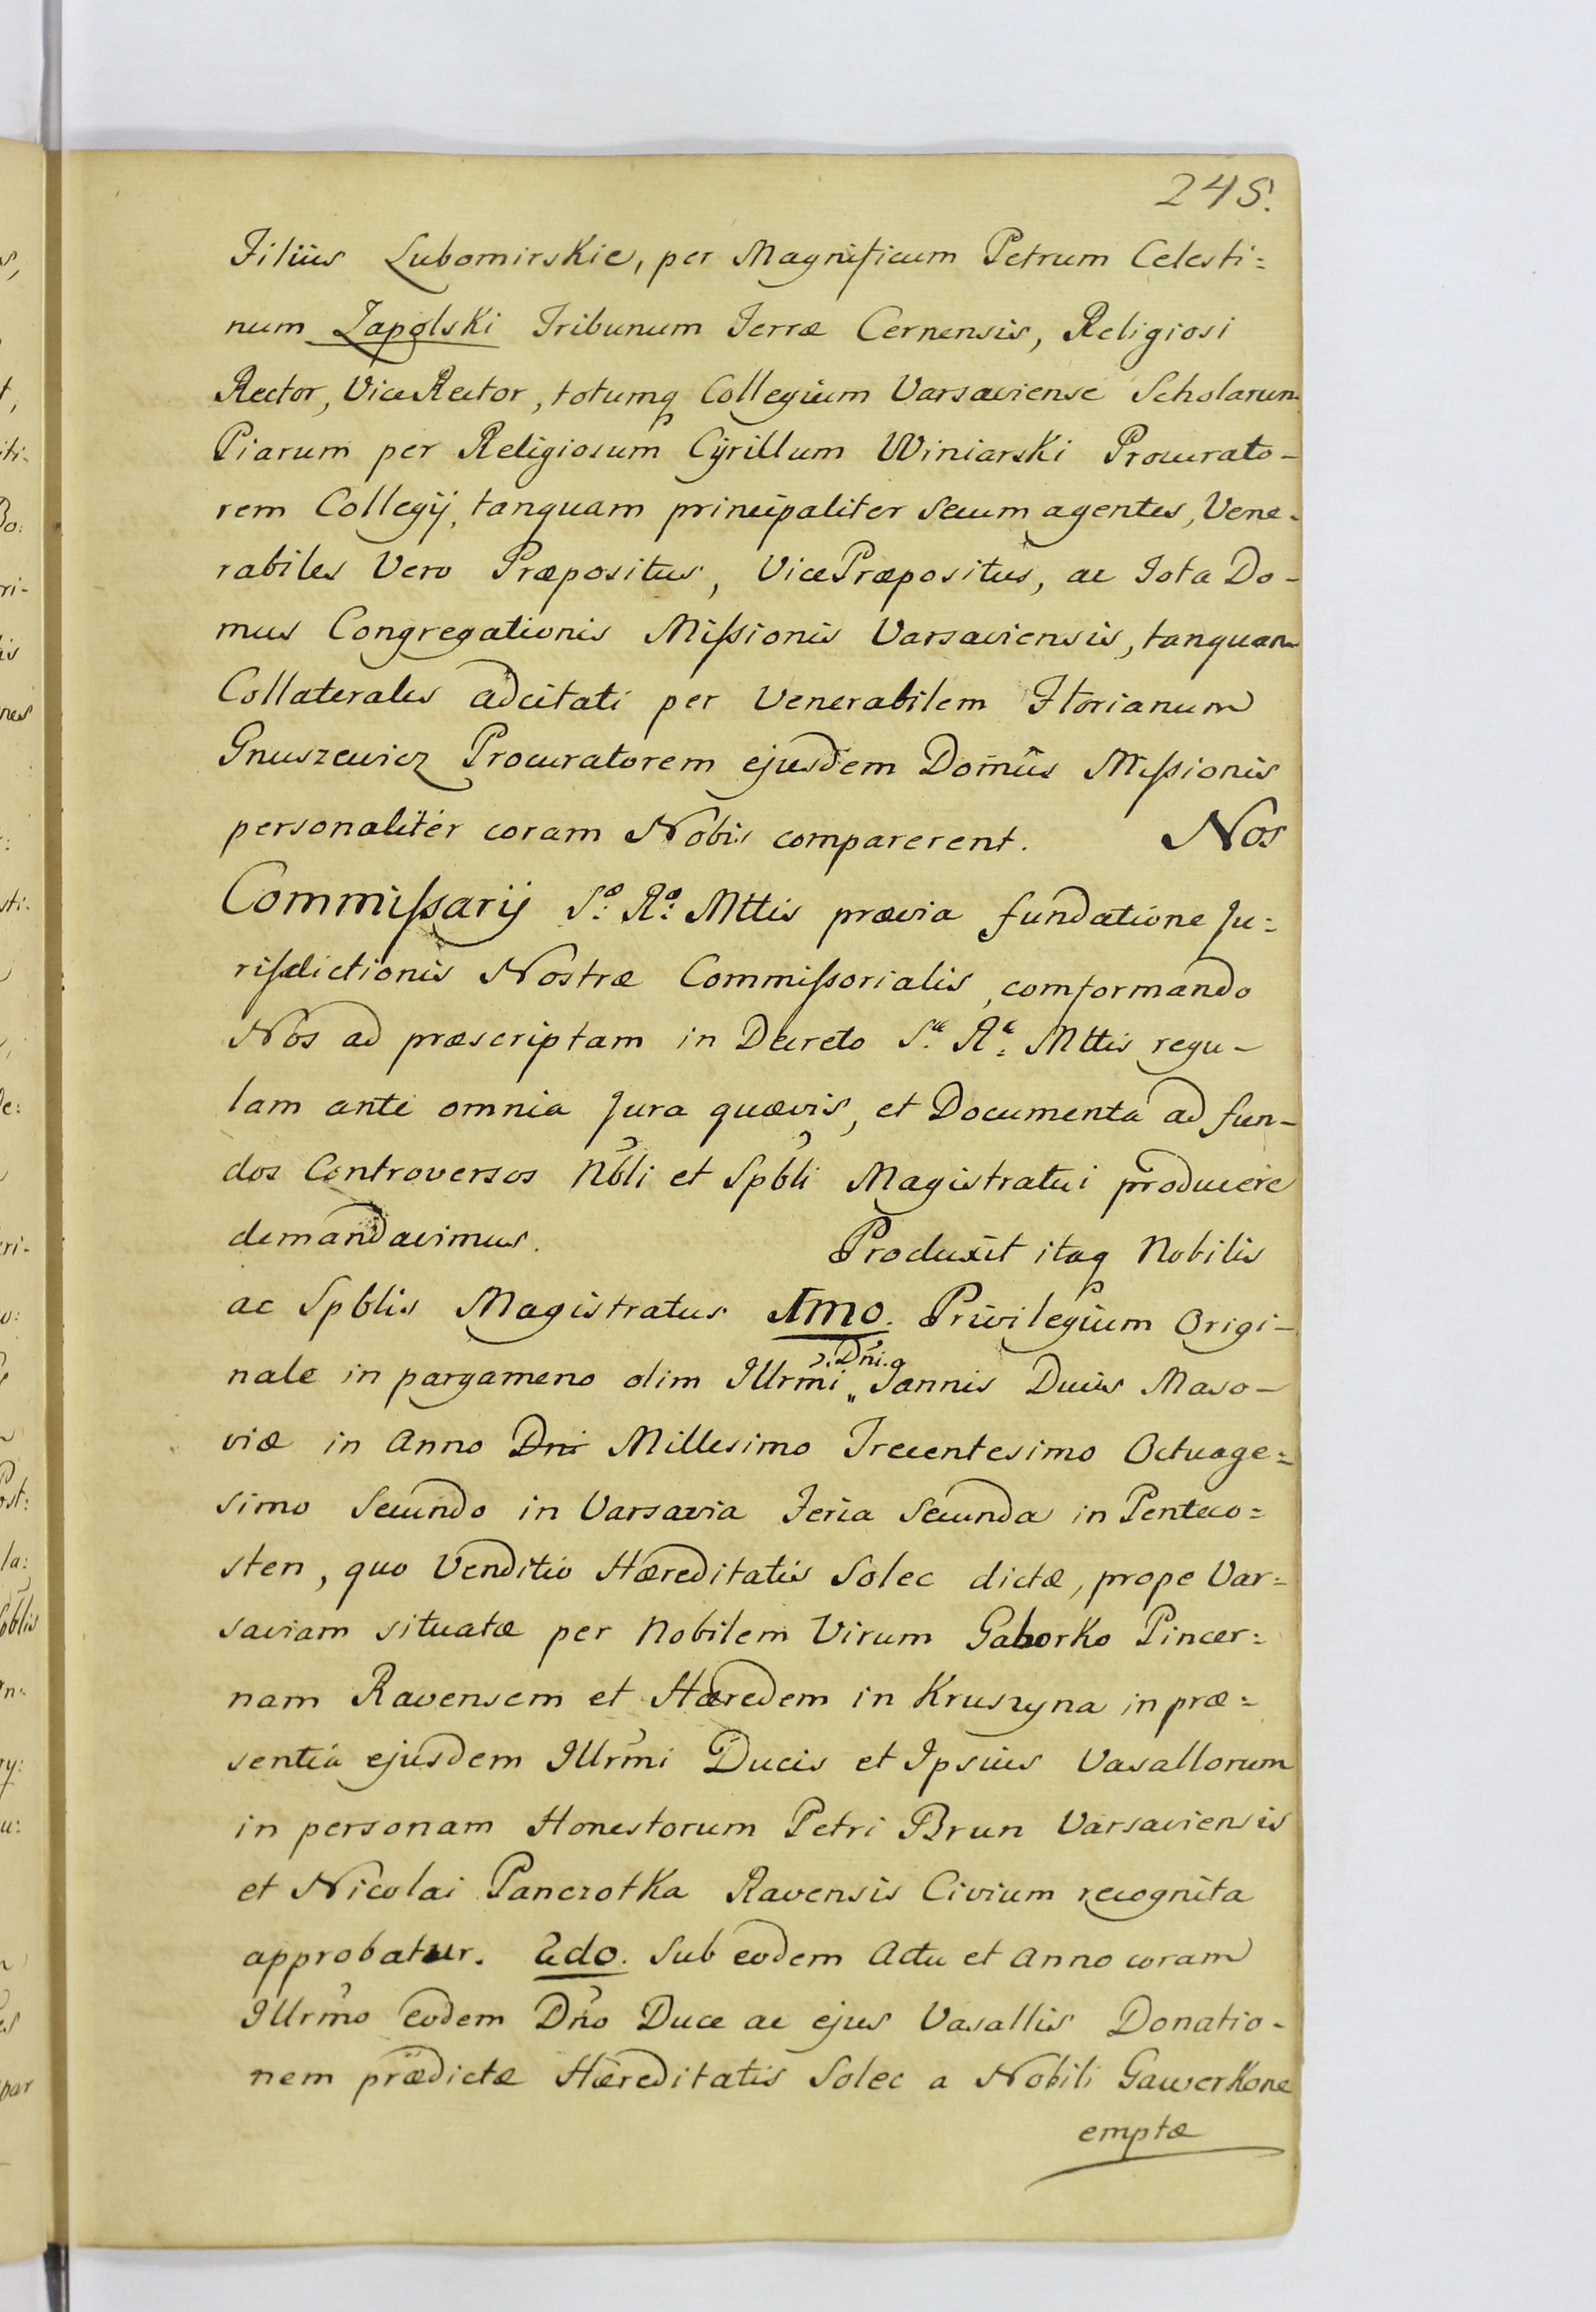 245.
Filius Lubomirskie, per Magnificum Petrum Celesti=
num Zapolski Tribunum Terræ Cernensis, Religiosi
Rector, ViceRector, totumq Collegium Varsaviense Scholarum
Piarum per Religiosum Cÿrillum Winiarski Procurato-
rem Collegÿ, tanquam principaliter secum agentes, Vene-
rabiles Vero Præpositus, VicePræpositus, ac Tota Do-
mus Congregationis Mißionis Varsaviensis, tanquam
Collaterales adcitati per Venerabilem Florianum
Gnuszewicz Procuratorem ejusdem Domûs Mißionis
personalitèr coram Nobis comparerent. Nos
Commißarÿ S: R: Mttis prævia fundatione Ju=
risdictionis Nostræ Commißorialis, comformando
Nos ad præscriptam in Decreto S. R. Mttis regu-
lam ante omnia Jura quævis, et Documenta ad fun-
dos Controversos Nbli et Spbli Magistratui producere
demandavimus. Produxit itaq Nobilis
ac Spblis Magistratus Imo. Privilegium Origi-
nale in pargameno olim Illrmi Dni. Joannis Ducis Maso-
viæ in Anno Dni Millesimo Trecentesimo Octuage=
simo Secundo in Varsavia Feria Secunda in Penteco=
sten, quo Venditio Hæreditatis Solec dictæ, prope Var=
saviam situatæ per Nobilem Virum Gaborko Pincer=
nam Ravensem et Hæredem in Kruszyna in præ=
sentia ejusdem Illrmi Ducis et Ipsius Vasallorum
in personam Honestorum Petri Brun Varsaviensis
et Nicolai Panczotka Ravensis Civium recognita
approbatur. 2do. Sub eodem Actu et Anno coram
Illrmo eodem Dno Duce ac ejus Vasallis Donatio-
nem prædictæ Hæreditatis Solec a Nobili Gawerkone
emptæ